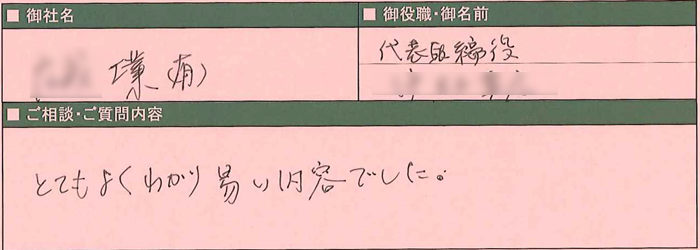 ■ 御社名
■ 御役職・御名前
工業(有)
代表取締役
■ ご相談・ご質問内容
とてもよくわかり易い内容でした。